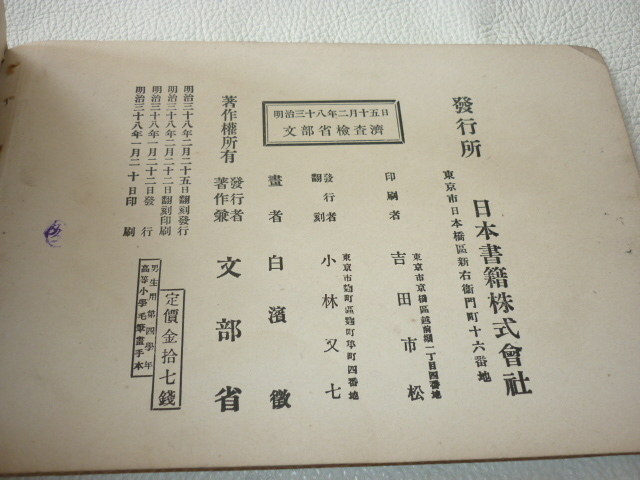 發行所
日本書籍株式會社
東京市日本橋區新右衛門町十六番地
明治三十八年二月十五日
文部省檢査濟
印刷者
吉田市松
東京市京橋區越前堀一丁目四番地
翻刻
發行者
小林又七
東京市麹町區麹町隼町四番地
畫者
白濱徴
著作權所有
著作兼
發行者
文部省
明治三十八年二月二十五日翻刻發行
明治三十八年二月二十二日翻刻印刷
明治三十八年一月二十二日發行
明治三十八年一月二十日印刷
定價金拾七錢
高等小學毛筆畫手本
男生用第四學年